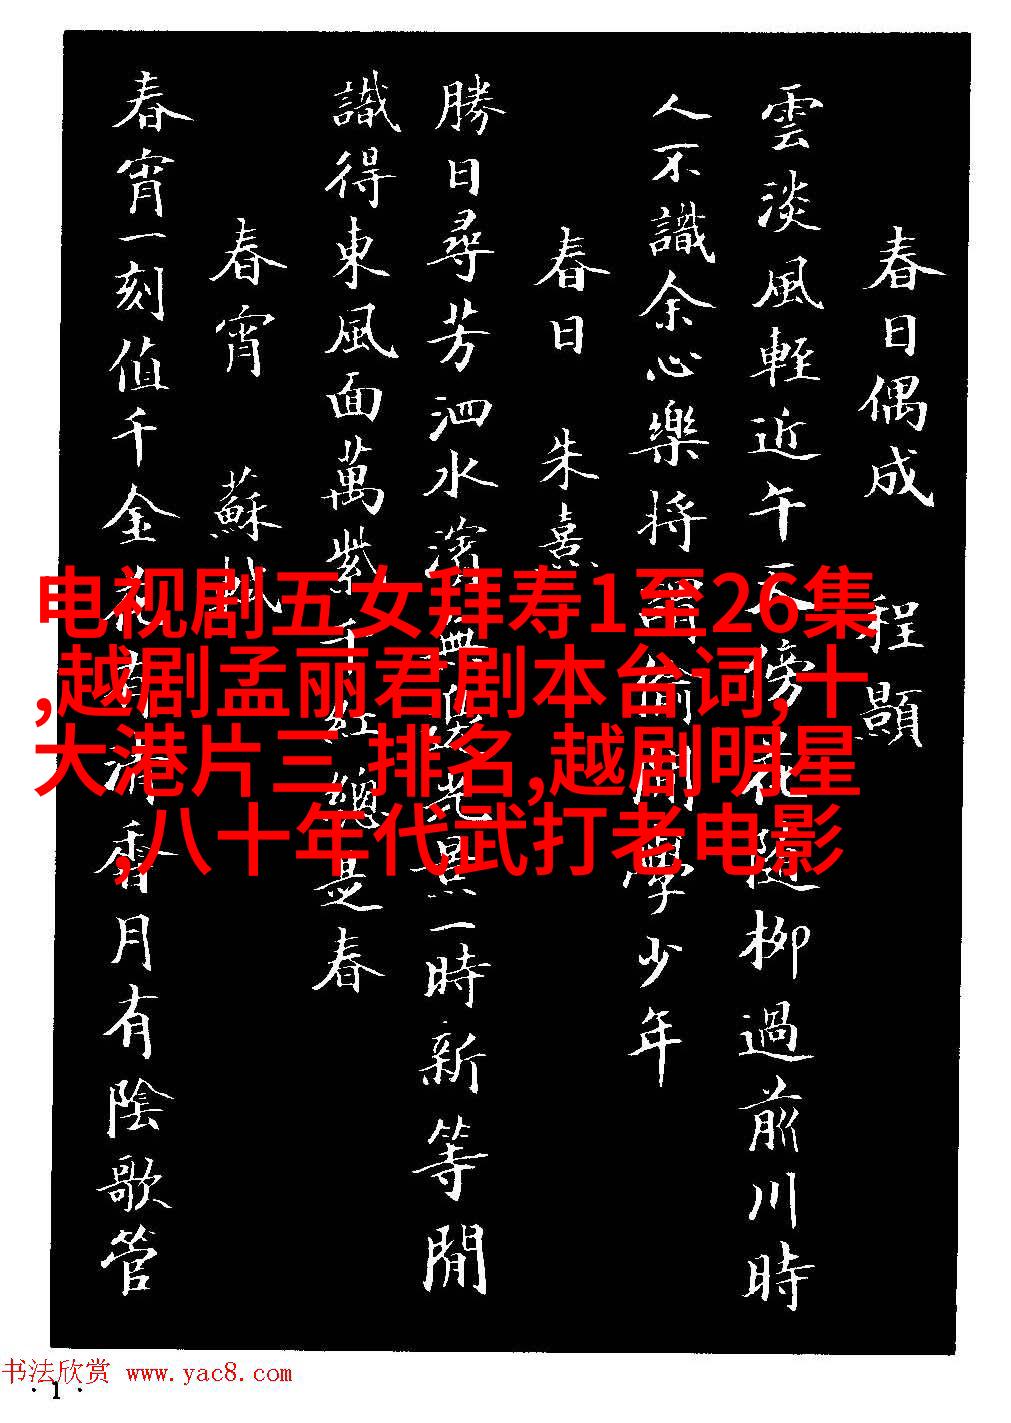 春日偶成 程顥
雲淡風輕近午天傍花隨柳過前川時
人不識余心樂將謂偷閒學少年
春日 朱熹
勝日尋芳泗水濱無邊光景一時新等閒
識得東風面萬紫千紅總是春
春宵 蘇軾
春宵一刻值千金花有清香月有陰歌管
电视剧五女拜寿1至26集
,越剧孟丽君剧本台词,十
大港片三 排名,越剧明星
,八十年代武打老电影
书法欣赏 www.yac8.com
·1·